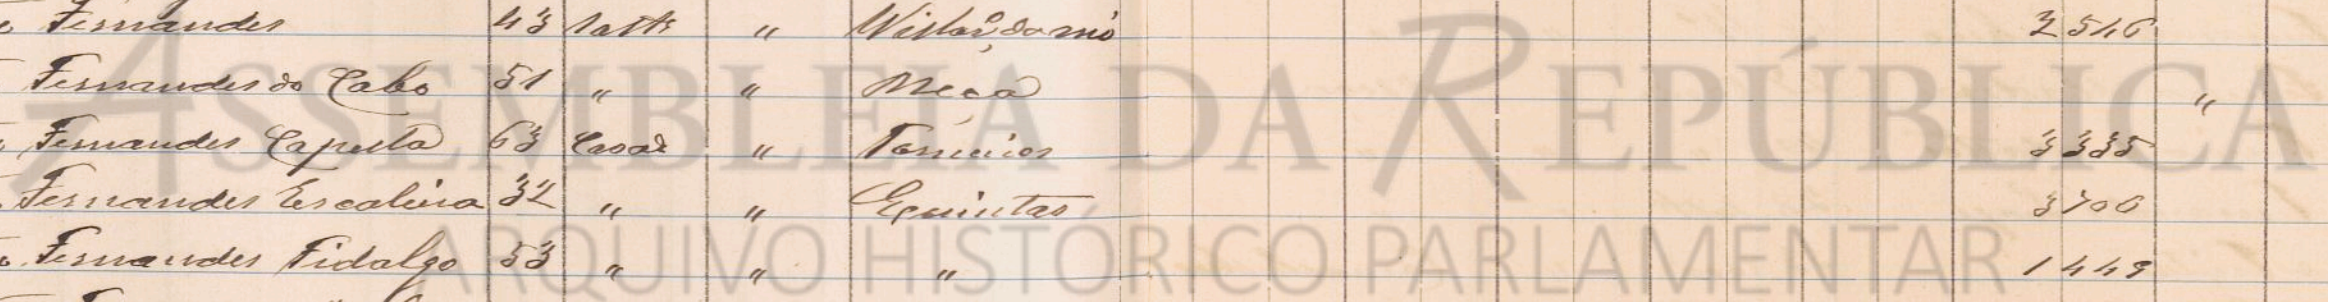 Fernandes 43 " 2546
Fernandes do Cabo 51 " " Meca "
Fernandes Capella 63 Casad " Torneiros 3335
Fernandes Escaleira 32 " " Quintas 3706
Fernandes Fidalgo 53 " " " 1449
ASSEMBLEIA DA REPÚBLICA
ARQUIVO HISTÓRICO PARLAMENTAR